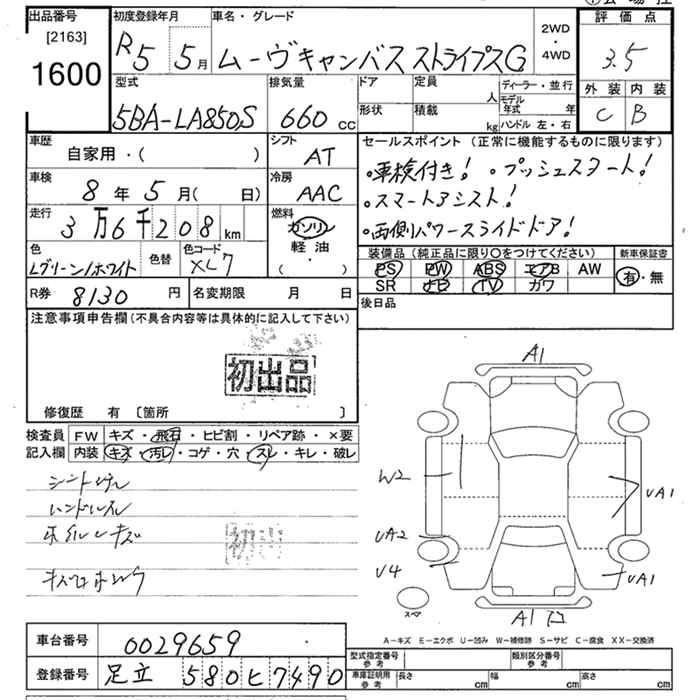 出品番号
[2163]
1600
初度登録年月
R5 5月
車名・グレード
ムーヴキャンバス ストライプスG
2WD
・
4WD
評価点
3.5
外装 内装
C B
型式
5BA-LA850S
排気量
660 cc
ドア
形状
定員
人
積載
kg
ディーラー・並行
モデル年式 年
ハンドル 左・右
車歴
自家用・( )
シフト
AT
車検
8年 5月( 日)
冷房
AAC
走行
3万6千208km
燃料
ガソリン
軽油
( )
色
Lグリーン/ホワイト
色替
色コード
XL7
R券 8130 円
名変期限 月 日
セールスポイント (正常に機能するものに限ります)
・車検付き! ・プッシュスタート!
・スマートアシスト!
・両側パワースライドドア!
装備品 (純正品に限り○をつけてください)
PS PW ABS エアB AW
SR ナビ TV ガワ
新車保証書
有・無
後日品
注意事項申告欄(不具合内容等は具体的に記入して下さい)
初出品
修復歴 有 〔箇所 〕
検査員
記入欄
FW キズ・飛石・ヒビ割・リペア跡・×要
内装 キズ・汚レ・コゲ・穴・スレ・キレ・破レ
初出
A1
W2
UA1
UA2
U4
UA1
A1
スペア
A-キズ E-エクボ U-凹み W-補修跡 S-サビ C-腐食 XX-交換済
車台番号 0029659
登録番号 足立 580 ヒ 7490
型式指定番号
参考
類別区分番号
参考
車庫証明用
参考
長さ cm
幅 cm
高さ cm